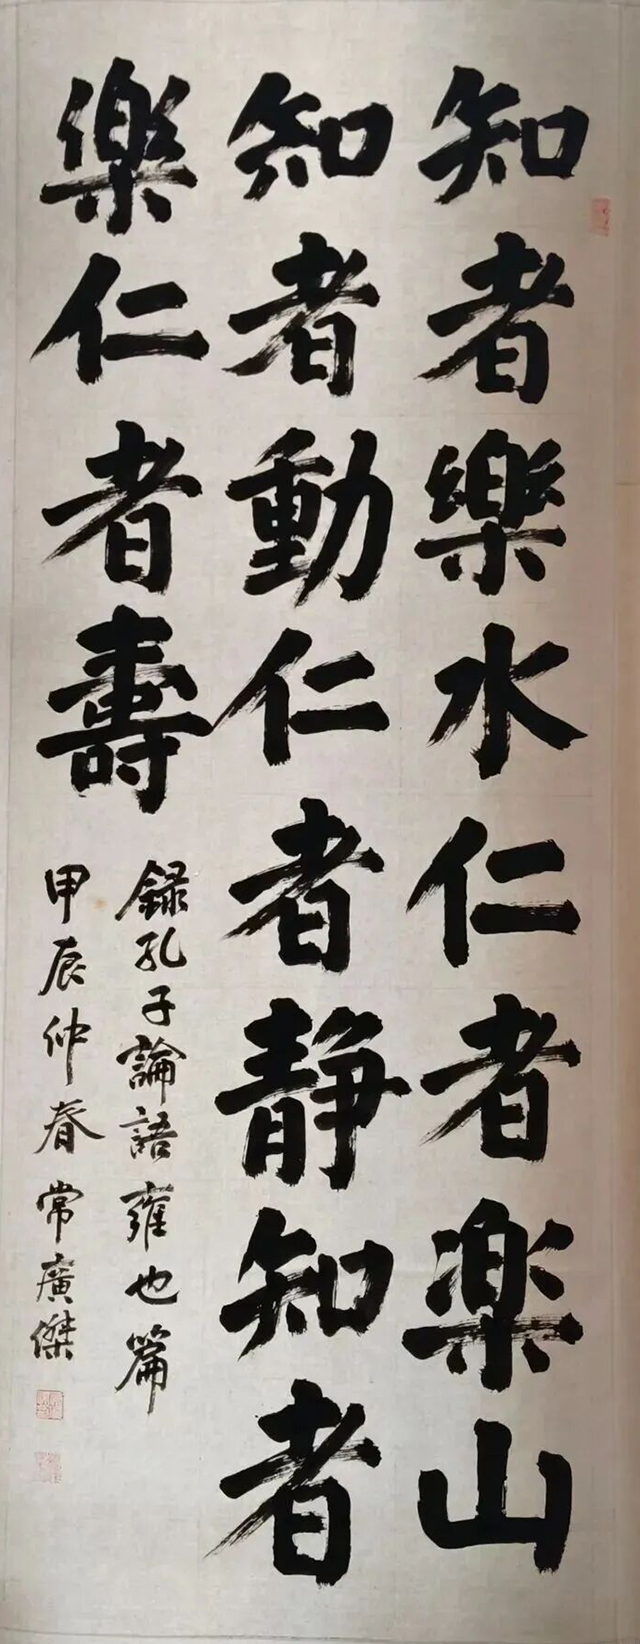 知者樂水仁者楽山
知者動仁者静知者
楽仁者壽
錄孔子論語雍也篇
甲辰仲春常廣傑